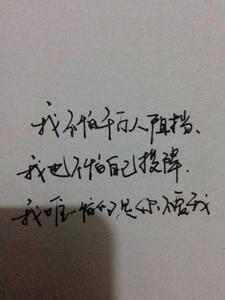 我不怕千万人阻挡、
我也不怕自己投降.
我唯一怕的是你不要我